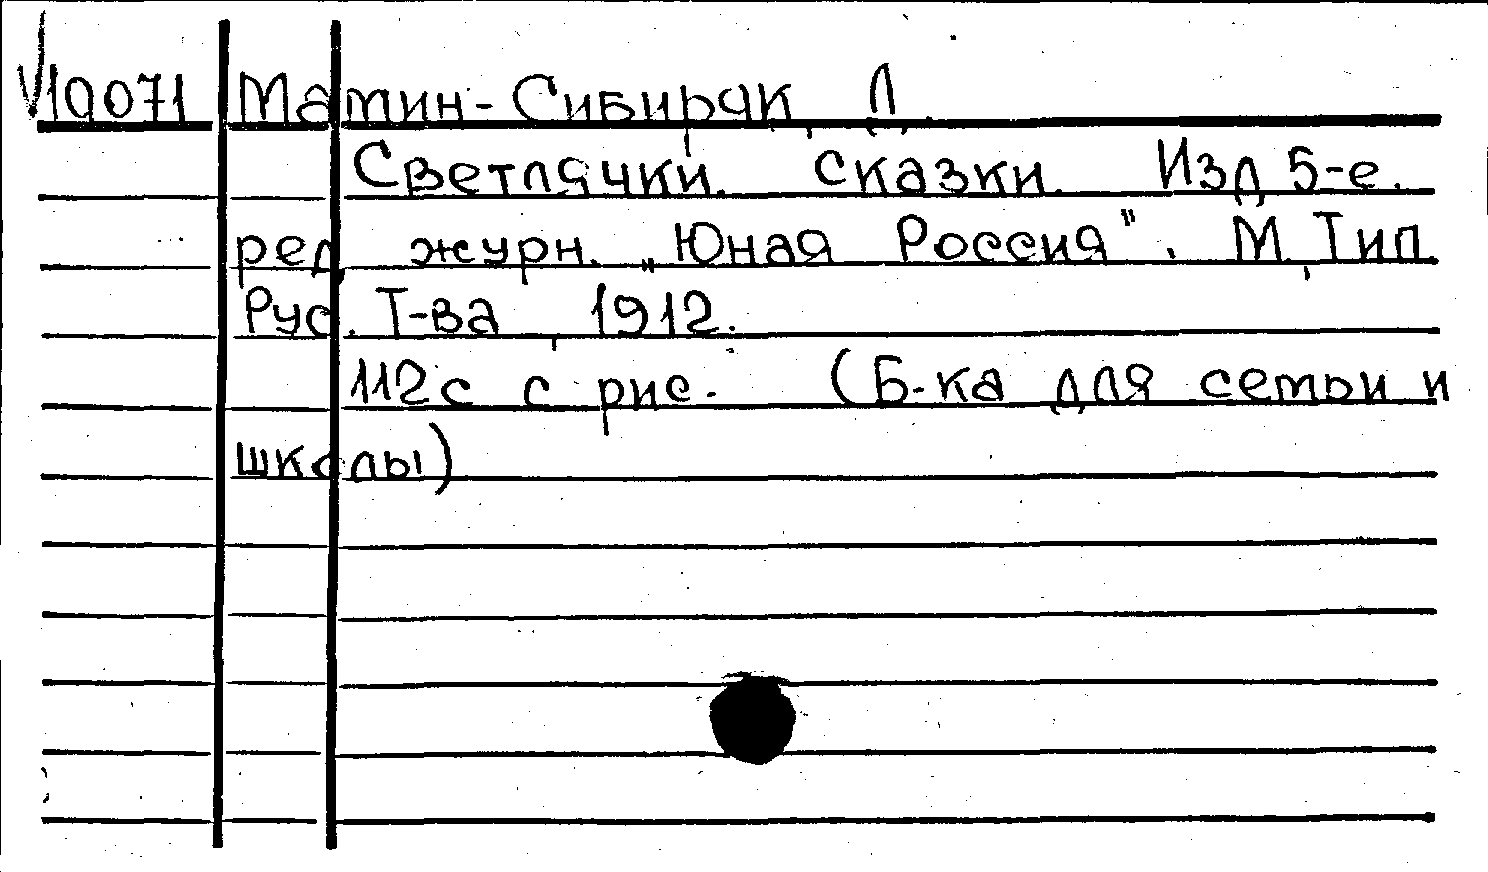 V19071 Мамин-Сибиряк, Д.
Светлячки. Сказки. Изд 5-е.
ред. журн. „Юная Россия". М., Тип.
Рус. Т-ва, 1912.
112с с рис. (Б-ка для семьи и
школы)